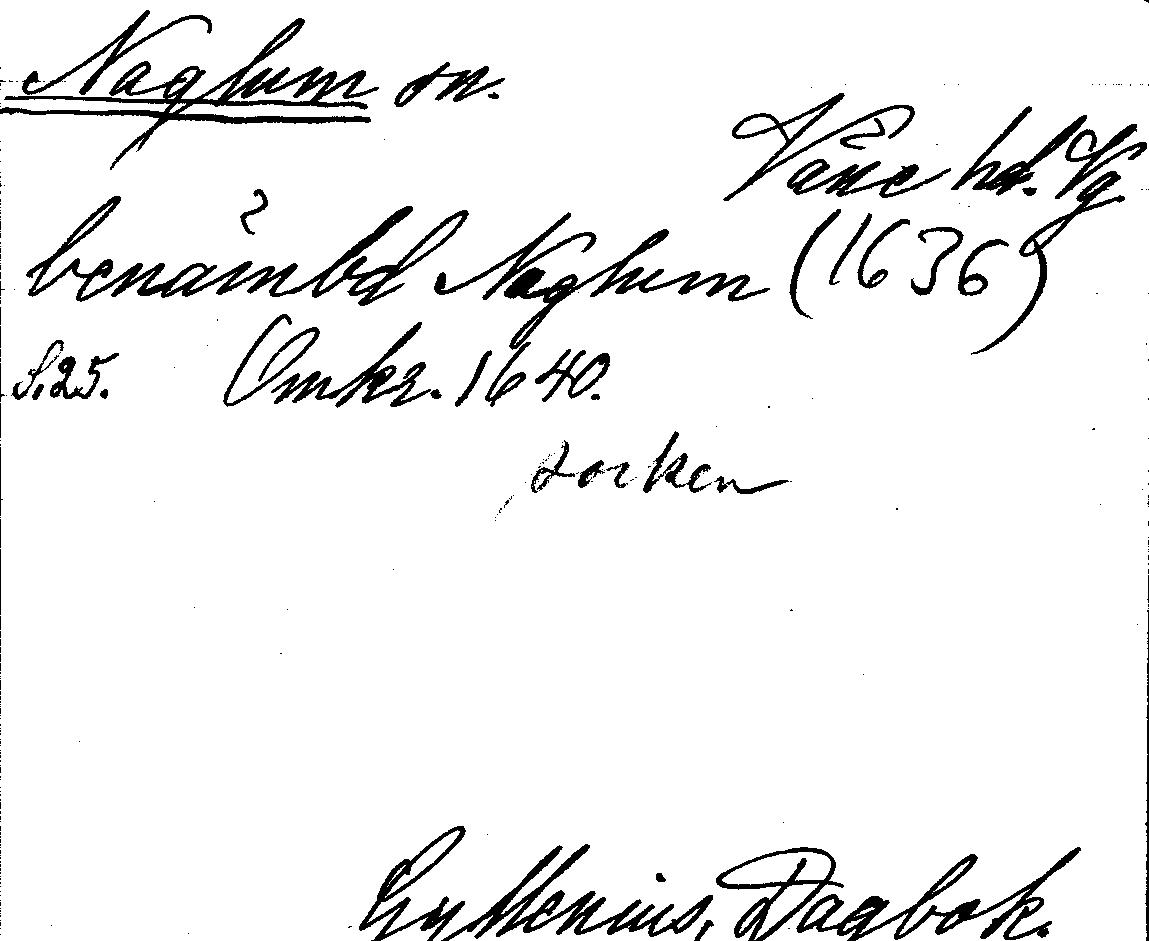 Naglum sn.
Väne hd. Vg.
benämbd Naglum (1636)
S.25. Omkr. 1640.
socken
Gyllenius, Dagbok.